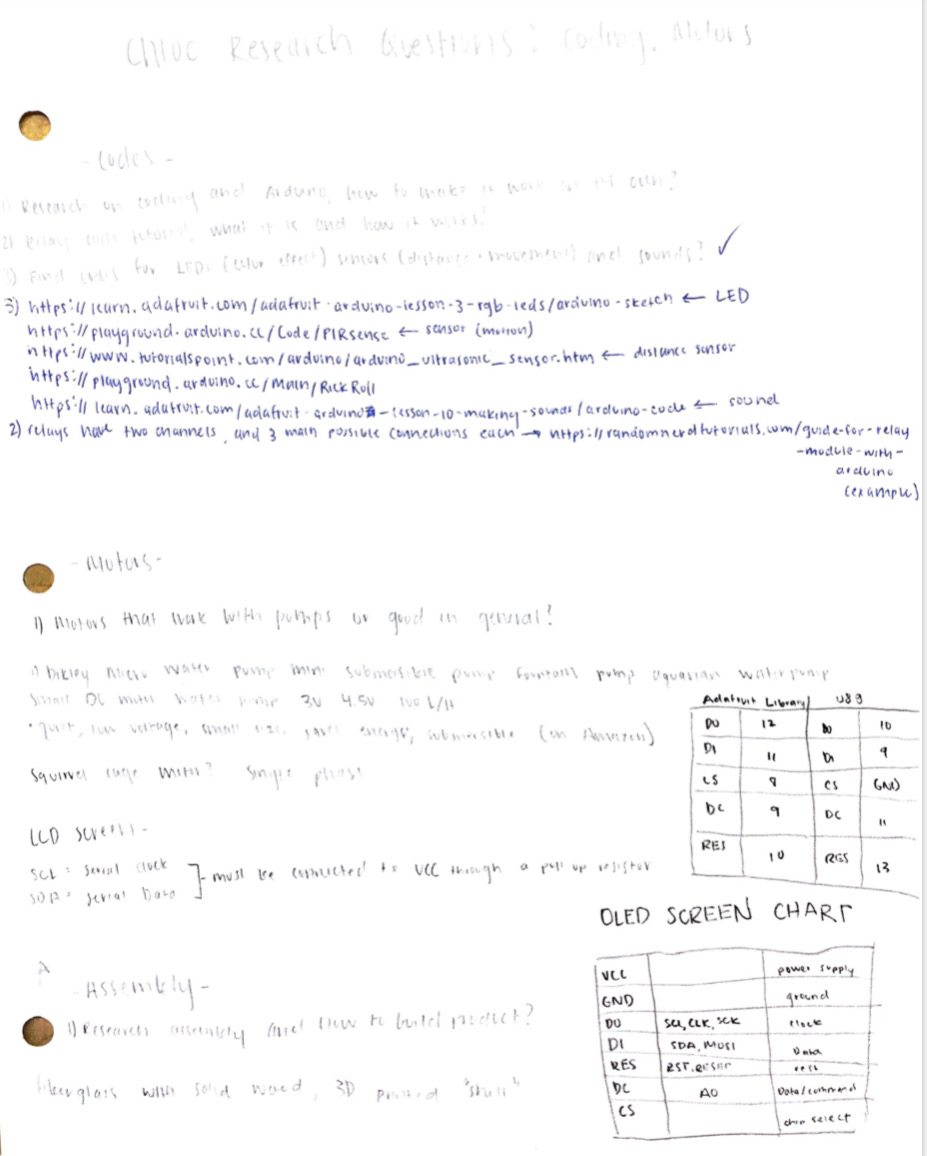 Chloe Research Questions: Coding, Motors
- Codes -
1) Research on coding and Arduino, how to make it work on its own?
2) Relay code tutorial, what it is and how it works?
3) Find codes for LEDs (color effect) sensors (distance + movement) and sounds? ✓
3) https://learn.adafruit.com/adafruit-arduino-lesson-3-rgb-leds/arduino-sketch ← LED
https://playground.arduino.cc/Code/PIRsense ← sensor (motion)
https://www.tutorialspoint.com/arduino/arduino_ultrasonic_sensor.htm ← distance sensor
https://playground.arduino.cc/Main/RickRoll
https://learn.adafruit.com/adafruit-arduino-lesson-10-making-sounds/arduino-code ← sound
2) relays have two channels, and 3 main possible connections each → https://randomnerdtutorials.com/guide-for-relay
-module-with-
arduino
(example)
- Motors -
1) Motors that work with pumps or good in general?
1) Micro water pump mini submersible pump fountain pump aquarium water pump
Small DC motor water pump 3V 4.5V 100 L/H
• quiet, low voltage, small size, save energy, submersible (on Amazon)
Squirrel cage motor? Single phase
Adafruit Library U8g
DO 12 DO 10
DI 11 DI 9
CS 8 CS GND
DC 9 DC 11
RES 10 RES 13
LCD screen -
SCL = Serial clock
SDA = Serial Data
] - must be connected to VCC through a pull up resistor
OLED SCREEN CHART
VCC power supply
GND ground
DO SCL, CLK, SCK clock
DI SDA, MOSI Data
RES RST, RESET rest
DC AO Data/command
CS chip select
- Assembly -
1) Research assembly and how to build product?
fiberglass with solid wood, 3D printed "shell"